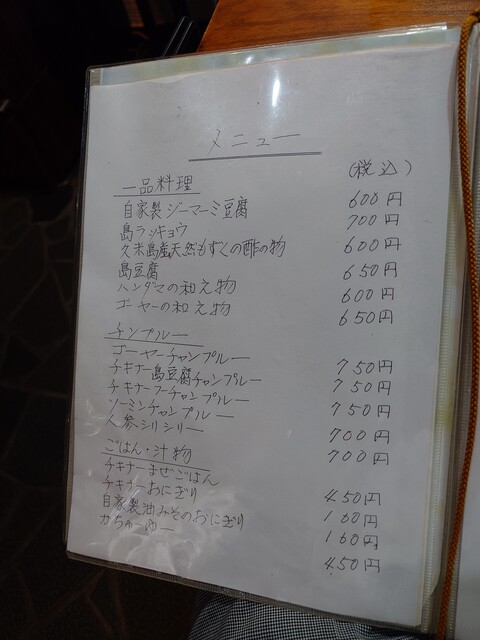 メニュー
(税込)
一品料理
自家製ジーマーミ豆腐 600円
島ラッキョウ 700円
久米島産天然もずくの酢の物 600円
島豆腐 650円
ハンダマの和え物 600円
ゴーヤーの和え物 650円
チンプルー
ゴーヤーチャンプルー 750円
チキナー島豆腐チャンプルー 750円
チキナーフーチャンプルー 750円
ソーミンチャンプルー 700円
人参シリシリー 700円
ごはん・汁物
チキナーまぜごはん 450円
チキナーおにぎり 160円
自家製油みそのおにぎり 160円
かちゅーゆー 450円